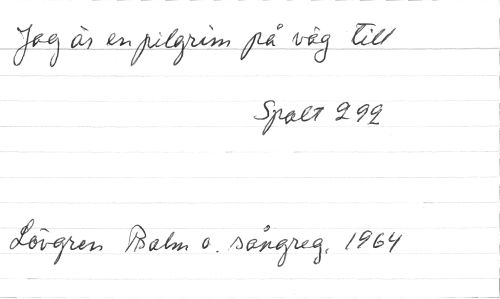 Jag är en pilgrim på väg till
Spalt 292
Lövgren Psalm o. sångreg. 1964